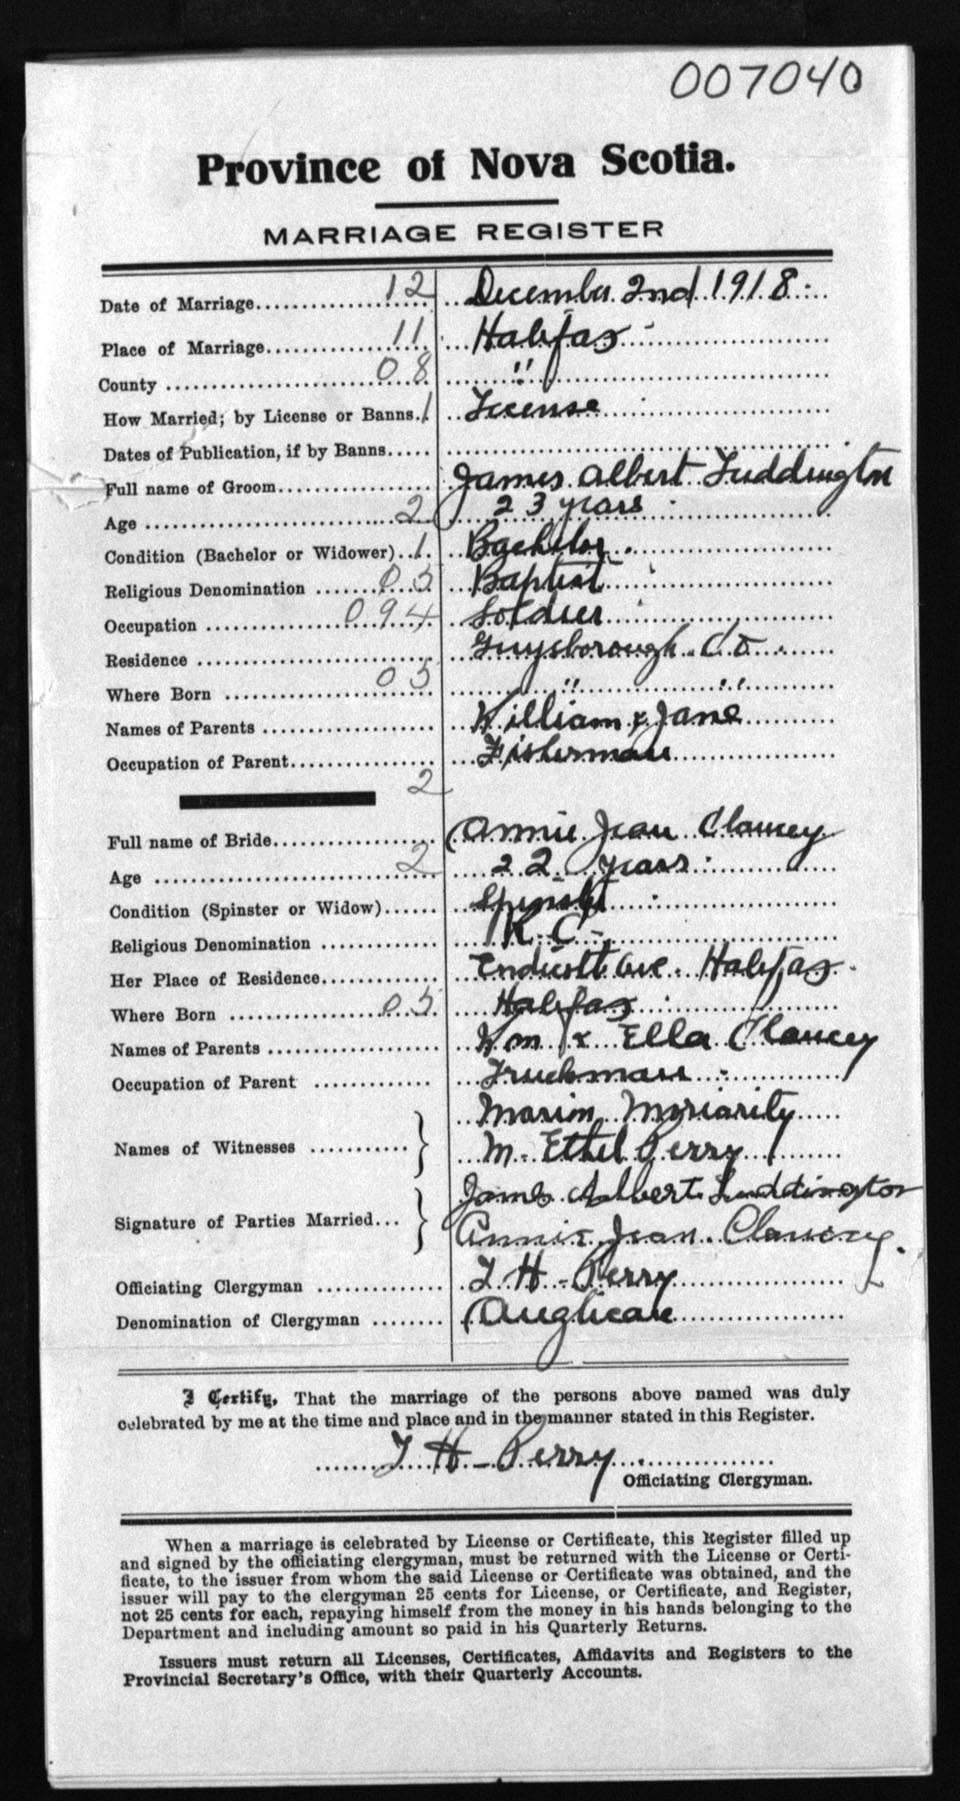 007040
Province of Nova Scotia.
MARRIAGE REGISTER
Date of Marriage 12 December 2nd 1918
Place of Marriage 11 Halifax
County 08 "
How Married; by License or Banns 1 License
Dates of Publication, if by Banns
Full name of Groom James Albert Luddington
Age 2 23 years
Condition (Bachelor or Widower) 1 Bachelor
Religious Denomination 05 Baptist
Occupation 094 Soldier
Residence Guysborough Co
Where Born 05 " "
Names of Parents William & Jane
Occupation of Parent Fisherman
2
Full name of Bride Annie Jean Clancey
Age 2 22 years
Condition (Spinster or Widow) Spinster
Religious Denomination R. C.
Her Place of Residence Endicott Ave. Halifax
Where Born 05 Halifax
Names of Parents Wm & Ella Clancey
Occupation of Parent Truckman
Names of Witnesses Moriarity
M. Ethel Perry
Signature of Parties Married James Albert Luddington
Annie Jean Clancey.
Officiating Clergyman T H Perry
Denomination of Clergyman Anglican
I Certify, That the marriage of the persons above named was duly
celebrated by me at the time and place and in the manner stated in this Register.
T H Perry
Officiating Clergyman.
When a marriage is celebrated by License or Certificate, this Register filled up
and signed by the officiating clergyman, must be returned with the License or Certi-
ficate, to the issuer from whom the said License or Certificate was obtained, and the
issuer will pay to the clergyman 25 cents for License, or Certificate, and Register,
not 25 cents for each, repaying himself from the money in his hands belonging to the
Department and including amount so paid in his Quarterly Returns.
Issuers must return all Licenses, Certificates, Affidavits and Registers to the
Provincial Secretary's Office, with their Quarterly Accounts.